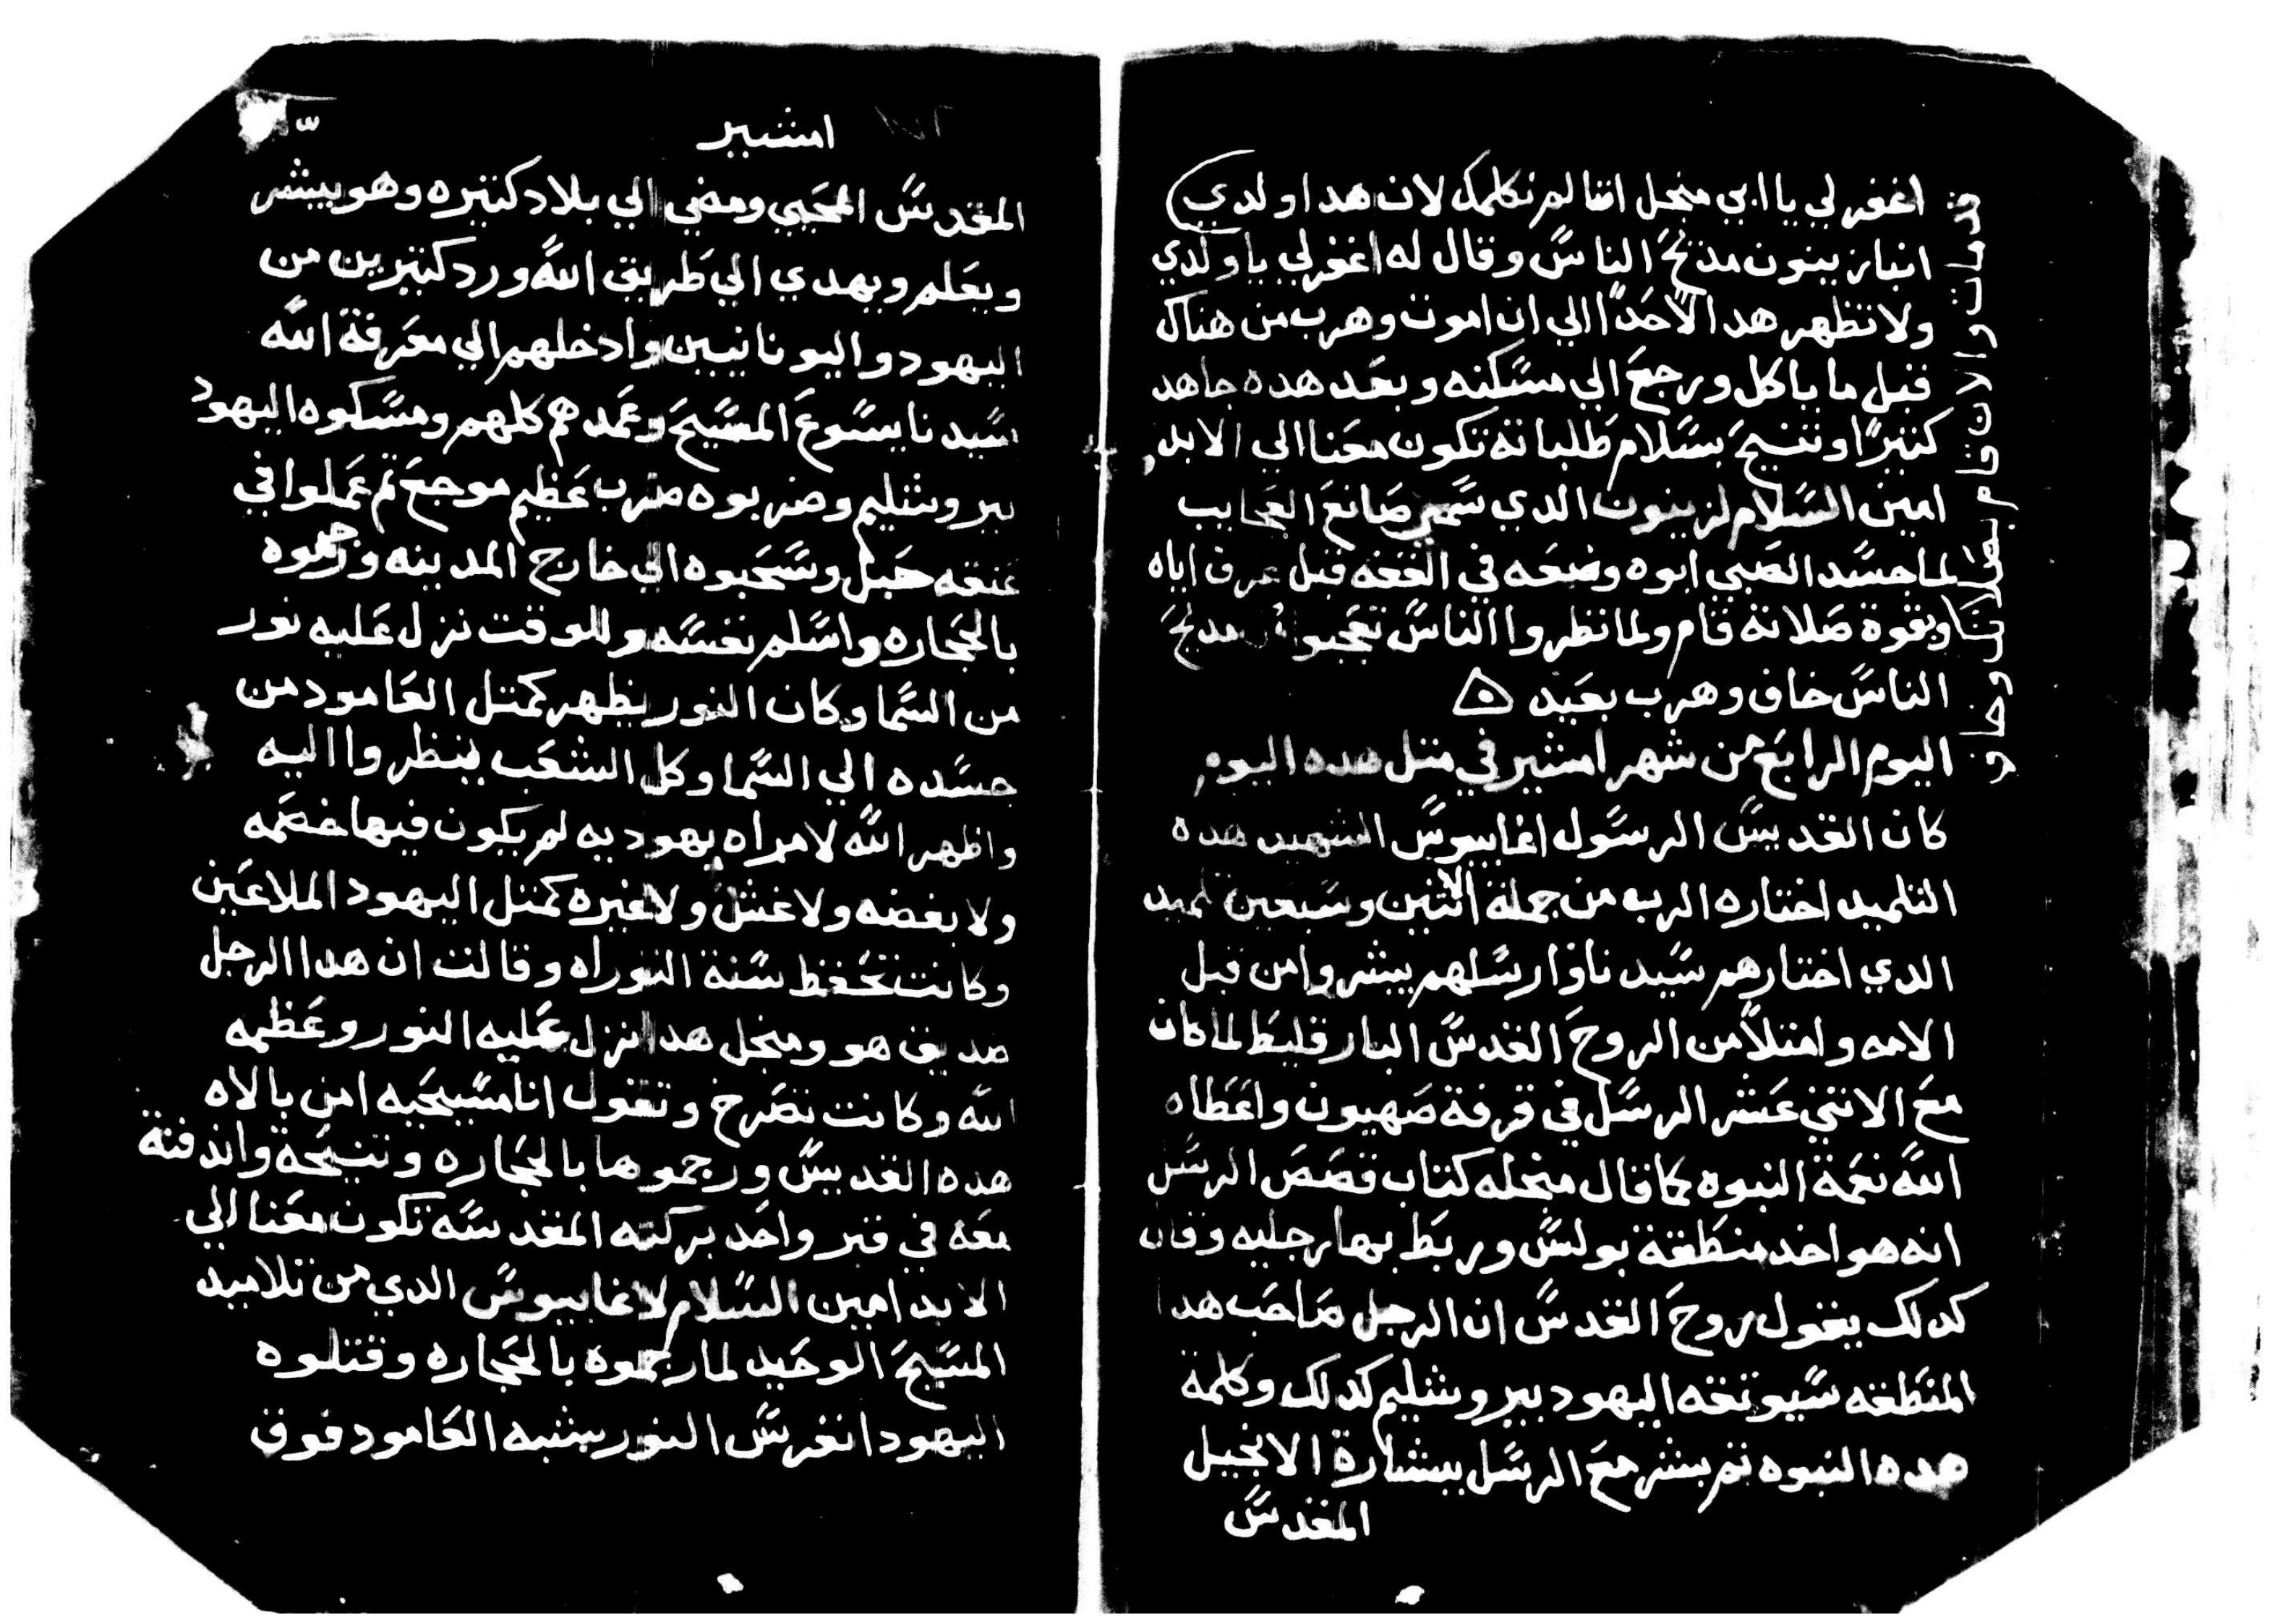 اغفر لي يا ابي منجل اننا لم نكلمك لان هدا ولدي
انبا زينون مدنحَ الناسً وقال له اغفر لي يا ولدي
ولا تظهر هدا لاحَدًا الي ان اموت وهرب من هناك
قبل ما ياكل ورجعَ الي مسًكنه وبعَد هده جاهد
كتيرًا وتنيحَ بسًلام طَلباته تكون معَنا الي الابد
امين السًلام لزينون الدي سًمي صَانعَ العَجايب
لما جسًد الصَبي ابوه وضعَه في القفه قبل عرف اياه
وبقوة صَلاته قام ولما نظروا الناسً تعَجبوا مديحَ
الناسً خاف وهرب بعَيد ه
قد مات والان قام بصَلاتك وخاف
اليوم الرابعَ من شهر امشير في متل هده اليوم
كان القديسً الرسًول اغابيوسً الشهيد هده
التلميد اختاره الرب من جملة الاتنين وسًبعَين تلميد
الدي اختارهم سًيدنا وارسًلهم يبشروا من قبل
الامه وامتلاً من الروحَ القدسً البارقليطَ لما كان
معَ الاتني عَشر الرسًل في قرفة صَهيون واعَطَاه
اللًه نعَمة النبوه كما قال منجله كتاب قصَصَ الرسًل
انه هو اخد منطَقة بولسً وربطَ بها رجليه وقال
كدلك يقول روحَ القدسً ان الرجل صَاحَب هدا
المنطَقه سًيوتقه اليهود بيروشليم كدلك وكلمة
هده النبوه تم بشر معَ الرسًل ببشارة الانجيل
المقدسً
امشير
المقدسً المحَيي ومضي الي بلاد كتيره وهو يبشر
ويعَلم ويهدي الي طَريق اللًه ورد كتيرين من
اليهود واليونانيين وادخلهم الي معَرفة اللًه
سًيدنا يسًوعَ المسًيحَ وعَمدهم كلهم ومسًكوه اليهود
بيروشليم وضربوه ضرب عَظيم موجعَ تم عَملوا في
عَنقه حَبل وسًحَبوه الي خارج المدينه ورجموه
بالحَجاره واسًلم نفسًه وللوقت نزل عَليه نور
من السًما وكان النور يظهر كمتل العَامود من
جسًده الي السًما وكل الشعَب ينظروا اليه
واظهر اللًه لامراه يهوديه لم يكون فيها خصَمه
ولا بغضه ولا غش ولا غيره كمتل اليهود الملاعَين
وكانت تحَفظ سًنة التوراه وقالت ان هدا الرجل
صديق هو ومنجل هدا نزل عَليه النور وعَظيمه
اللًه وكانت تصَرخ وتقول انا مسًيحَيه امن بالاه
هده القديسً ورجموها بالحَجاره وتنيحَة واندفنة
معَه في قبر واحَد بركته المقدسًه تكون معَنا الي
الابد امين السًلام لاغابيوسً الدي من تلاميد
المسًيحَ الوحَيد لما رجموه بالحَجاره وقتلوه
اليهود انغرسً النور بشبه العَامود فوق